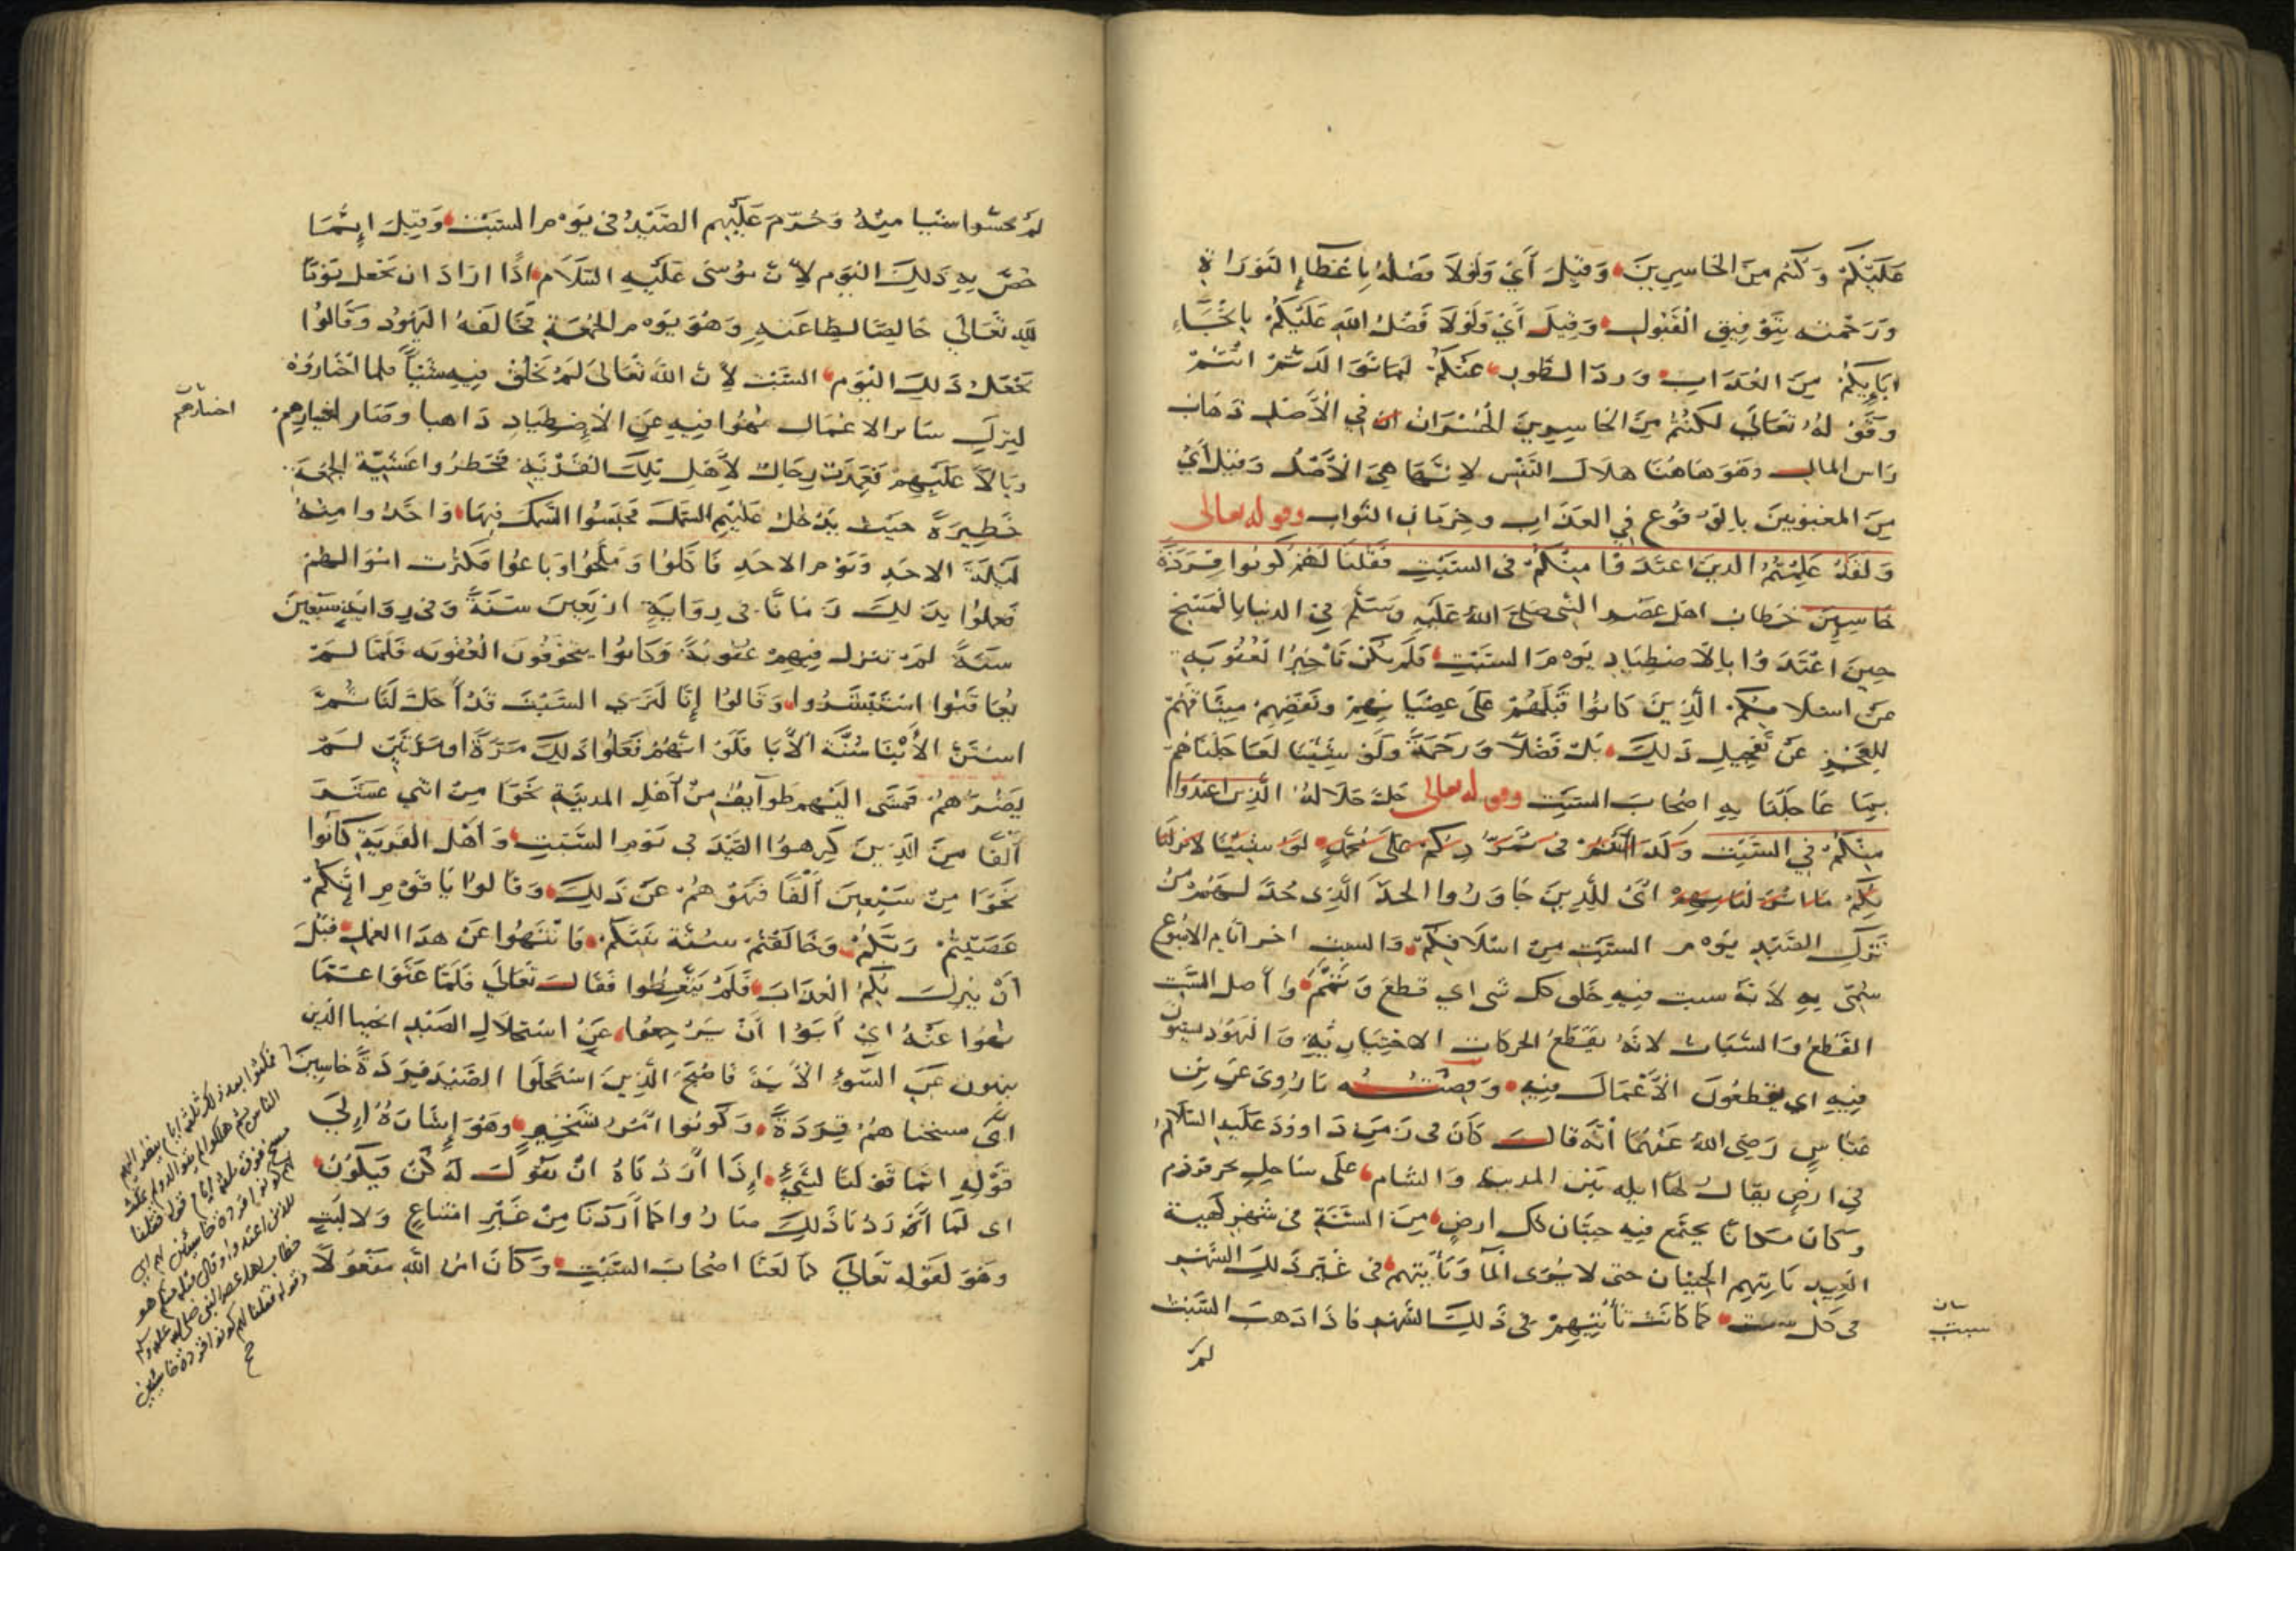 عليكم وكنتم من الخاسرين وقيل أي ولولا فضله باعطاء التوراة
ورحمته بتوفيق القبول وقيل أي ولولا فضل الله عليكم بانجاء
ابايكم من العذاب ورد الطور عنكم لما توالدتم انتم
وقوله تعالى لكنتم من الخاسرين الخسران في الأصل ذهاب
راس المال وهو هاهنا هلاك النفس لانها هي الأصل وقيل أي
من المغبونين بالوقوع في العذاب وحرمان الثواب وقوله تعالى
ولقد علمتم الذين اعتدوا منكم في السبت فقلنا لهم كونوا قردة
خاسين خطاب اهل عصر النبي صلى الله عليه وسلم في الدنيا بالمسخ
حين اعتدوا بالاصطياد يوم السبت فلم يكن تأخير العقوبة
عن اسلافكم الذين كانوا قبلهم على عصيانهم ونقضهم ميثاقهم
للعجز عن تعجيل ذلك بل فضلا ورحمة ولو شيئا لعاجلناهم
بما عاجلنا به اصحاب السبت وقوله تعالى جل جلاله الذين اعتدوا
منكم في السبت وكذا انتم في تمردكم على محمد لو شينا لانزلنا
بكم ما انزلنا بهم اي للذين جاوزوا الحد الذي حد لهم من
ترك الصيد يوم السبت من اسلافكم والسبت اخر أيام الاسبوع
سمي به لأنه سبت فيه خلق كل شي اي قطع وتمم وأصل السبت
القطع والسبات لانه يقطع الحركات الاختيارية واليهود يسبتون
فيه اي يقطعون الأعمال فيه وقصته ما روي عن ابن
عباس رضي الله عنهما أنه قال كان في زمن داوود عليه السلام
في ارض يقال لها ايله بين المدينة والشام على ساحل بحر قلزم
وكان مكانا يجتمع فيه حيتان كل ارض من السنة في شهر كهيئة
العيد تاتيهم الحيتان حتى لا يرى الما وتأتيهم في غير ذلك الشهر
في كل سبت كما كانت تأتيهم في ذلك الشهر فاذا ذهب السبت
لم
بيان
سبت
لم يحسوا شيا منه وحرم عليهم الصيد في يوم السبت وقيل انما
خص به ذلك اليوم لأن موسى عليه السلام اذا اراد ان يجعل يوما
لله تعالى خالصا لطاعته وهو يوم الجمعة فخالفه اليهود وقالوا
نجعل ذلك اليوم السبت لأن الله تعالى لم يخلق فيه شيئا فلما اختاروه
ليترك سائر الاعمال نهوا فيه عن الاصطياد ذاهبا وصار اختيارهم
اختيارهم
وبالا عليهم فعمدت رجال لأهل تلك القرية فحظروا عشية الجمعة
حظيرة حيث يدخل عليهم السمك فحبسوا السمك فيها واخذوا منه
ليلة الاحد ويوم الاحد فاكلوا وملحوا وباعوا فكثرت اموالهم
فعملوا بذلك زمانا في رواية اربعين سنة وفي رواية سبعين
سنة لم تنزل فيهم عقوبة وكانوا يتخوفون العقوبه فلما لم
يعاقبوا استبشروا وقالوا إنا لنرى السبت قد أحل لنا ثم
استن الأبنا سنة الأبا فلو انهم فعلوا ذلك مرة او مرتين لم
يضرهم فمشى اليهم طوايف من أهل المدينة نحوا من اثني عشر
ألفا من الذين كرهوا الصيد في يوم السبت وأهل القرية كانوا
نحوا من سبعين ألفا فنهوهم عن ذلك وقالوا يا قوم انكم
عصيتم ربكم وخالفتم سنة نبيكم فانتهوا عن هذا العمل قبل
أن ينزل بكم العذاب فلم يتعظوا فقال تعالى فلما عتوا عما
نهوا عنه اي أبوا أن يرجعوا عن استحلال الصيد انجينا الذين
ينهون عن السوء الأية فاصبح الذين استحلوا الصيد قردة خاسين
اي مسخناهم قردة وكونوا امر تسخير وهو إشارة إلى
قوله انما قولنا لشيء إذا أردناه ان نقول له كن فيكون
اى لما أردنا ذلك صاروا كما أردنا من غير امتناع ولا لبث
وهو لقوله تعالى كما لعنا اصحاب السبت وكان امر الله مفعولا
فمكثوا بعد ذلك ثلثة ايام ينظر اليهم
الناس ثم هلكوا
فوق ثلثة ايام قوله فقلنا
لهم كونوا قردة خاسئين
للذين اعتدوا
خطاب لاهل عصر النبي صلى الله عليه وسلم
وقوله فقلنا لهم كونوا قردة خاسئين
صح